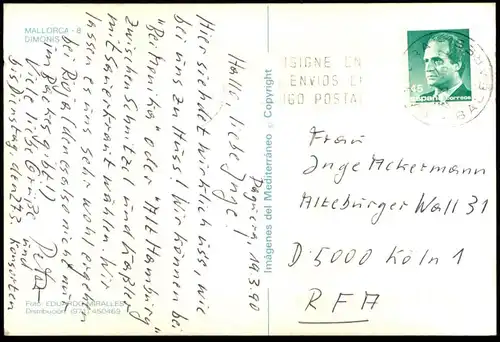 MALLORCA - 8
DIMONIS
Paguera, 19.3.90
Hallo, liebe Inge!
Hier sieht et wirklich aus, wie
bei uns zu Haus! Wir können bei
"Bei Monika" oder "Alt Hamburg"
zwischen Schnitzel und Kaßler
mit Sauerkraut wählen. Wir
lassen es uns sehr wohl ergehen
im
Viele liebe Grüße
Peter
und
bis Dienstag, den 27.3.
Foto: EDUARDO MIRALLES
Distribución: (971) 450469
Imágenes del Mediterráneo © Copyright
SIGNE EN
ENVIOS EL
IGO POSTAL
BALEARES
45
España correos
Frau
Inge Ackermann
Alteburger Wall 31
D 5000 Köln 1
RFA